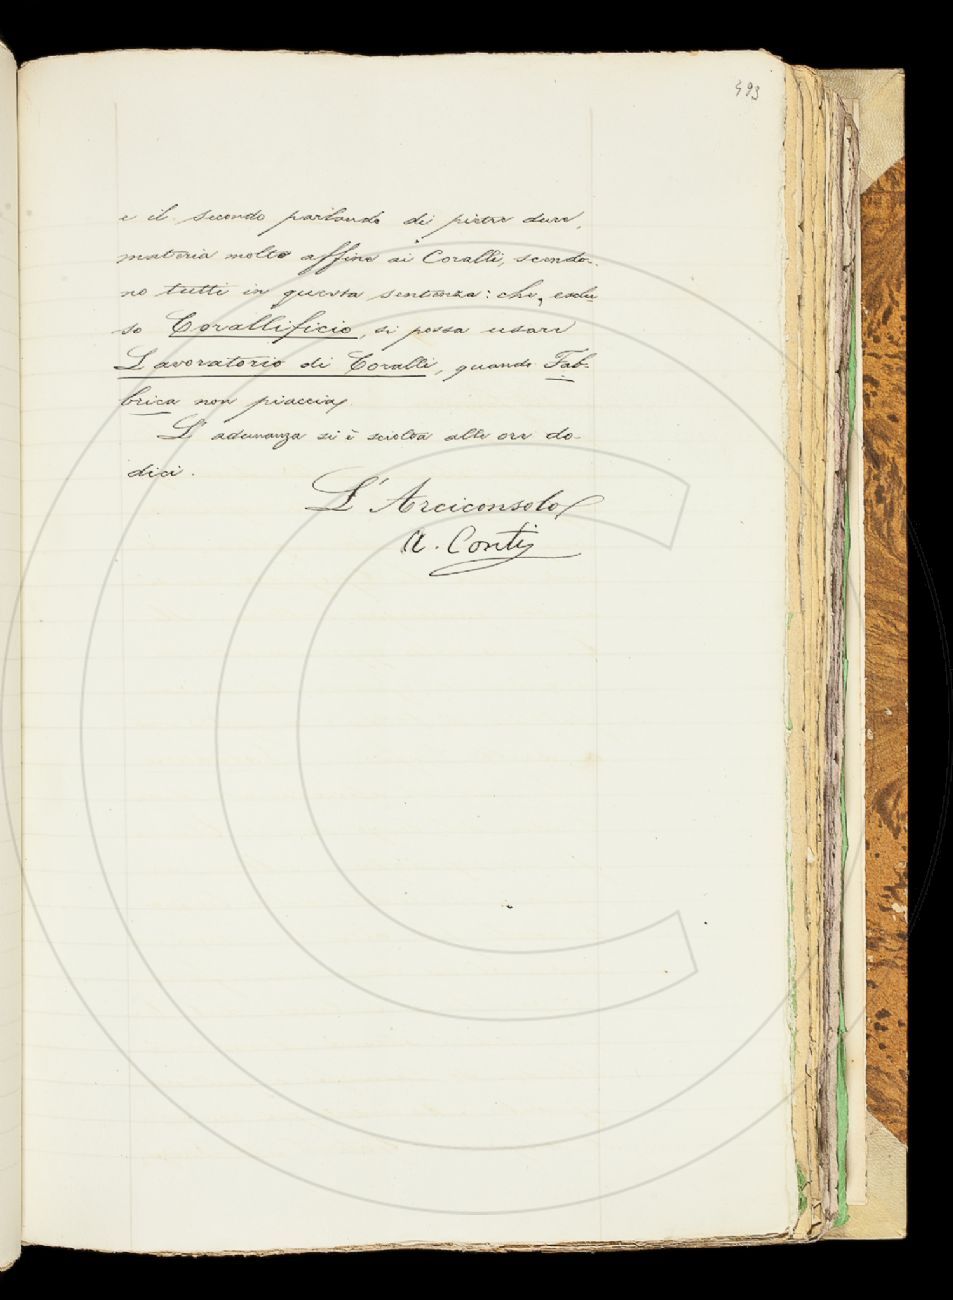 493
e il secondo parlando di pietre dure,
materia molto affine ai Coralli, scendo-
no tutti in questa sentenza: che, esclu
so Corallificio, si possa usare
Lavoratorio di Coralli, quando Fab-
brica non piaccia.
L'adunanza si è sciolta alle ore do-
dici.
L'Arciconsolo
A. Conti